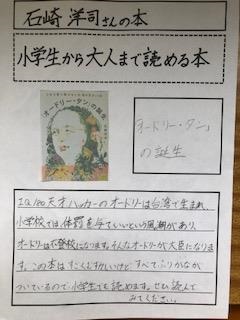 石崎 洋司さんの本
小学生から大人まで読める本
「オードリー・タン」の誕生
「オードリー・タン」
の誕生
IQ180天才ハッカーのオードリーは台湾で生まれ、
小学校では、体罰を与えていいという風潮があり、
オードリーは不登校になります。そんなオードリーが大臣になりま
す。この本はすごくむずかしいけど すべてふりがなが
ついているので 小学生でも読めます。ぜひ読んで
みてください。